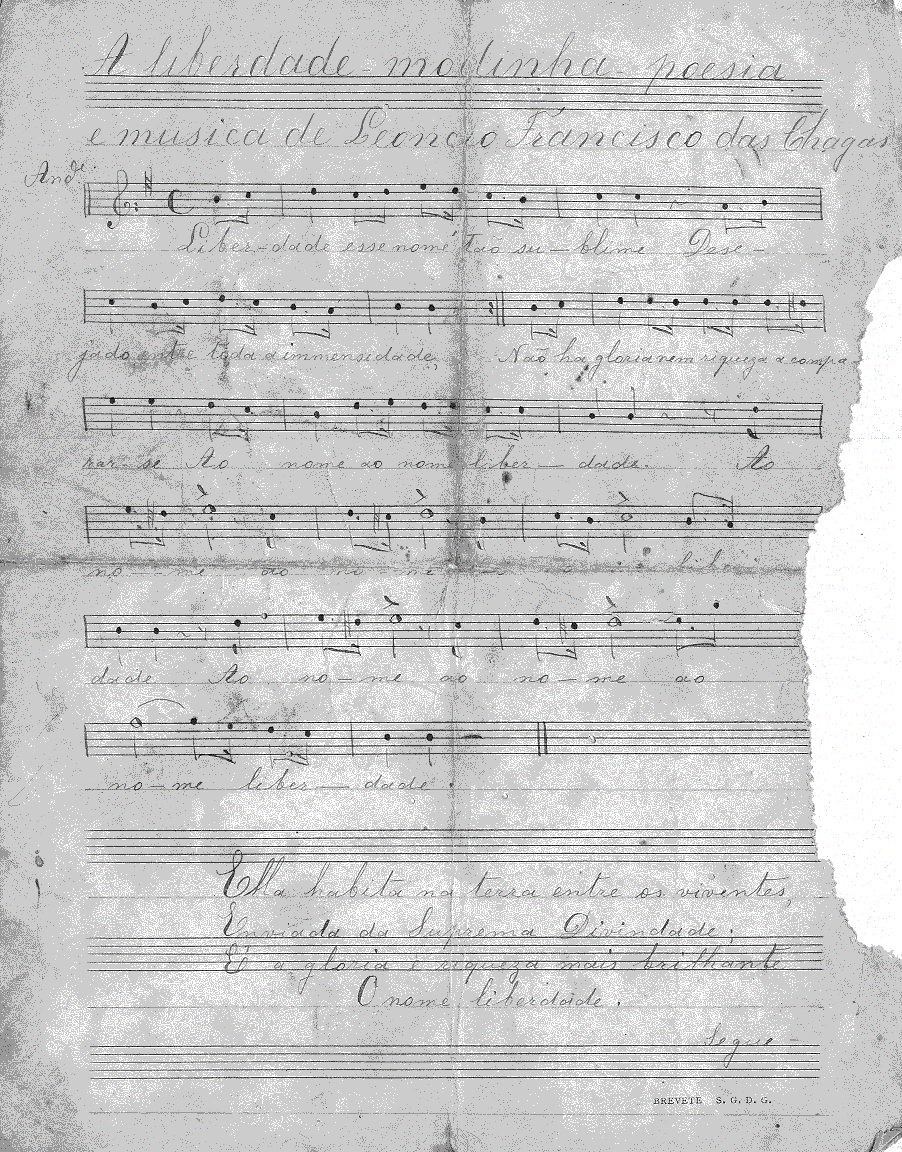 A liberdade - modinha - poesia
e musica de Leoncio Francisco das Chagas
And.e
Liber-dade esse nome Tao su-blime Dese-
jado entre toda a immensidade,
Não ha gloria nem riqueza a compa-
rar-se Ao nome ao nome liber-dade. Ao
no-me ao no me
dade Ao no-me ao no-me ao
no-me liber-dade.
Ella habita na terra entre os viventes,
Enviada da Suprema Divindade;
É a gloria e riqueza mais brilhante
O nome liberdade.
Segue -
BREVETE S. G. D. G.